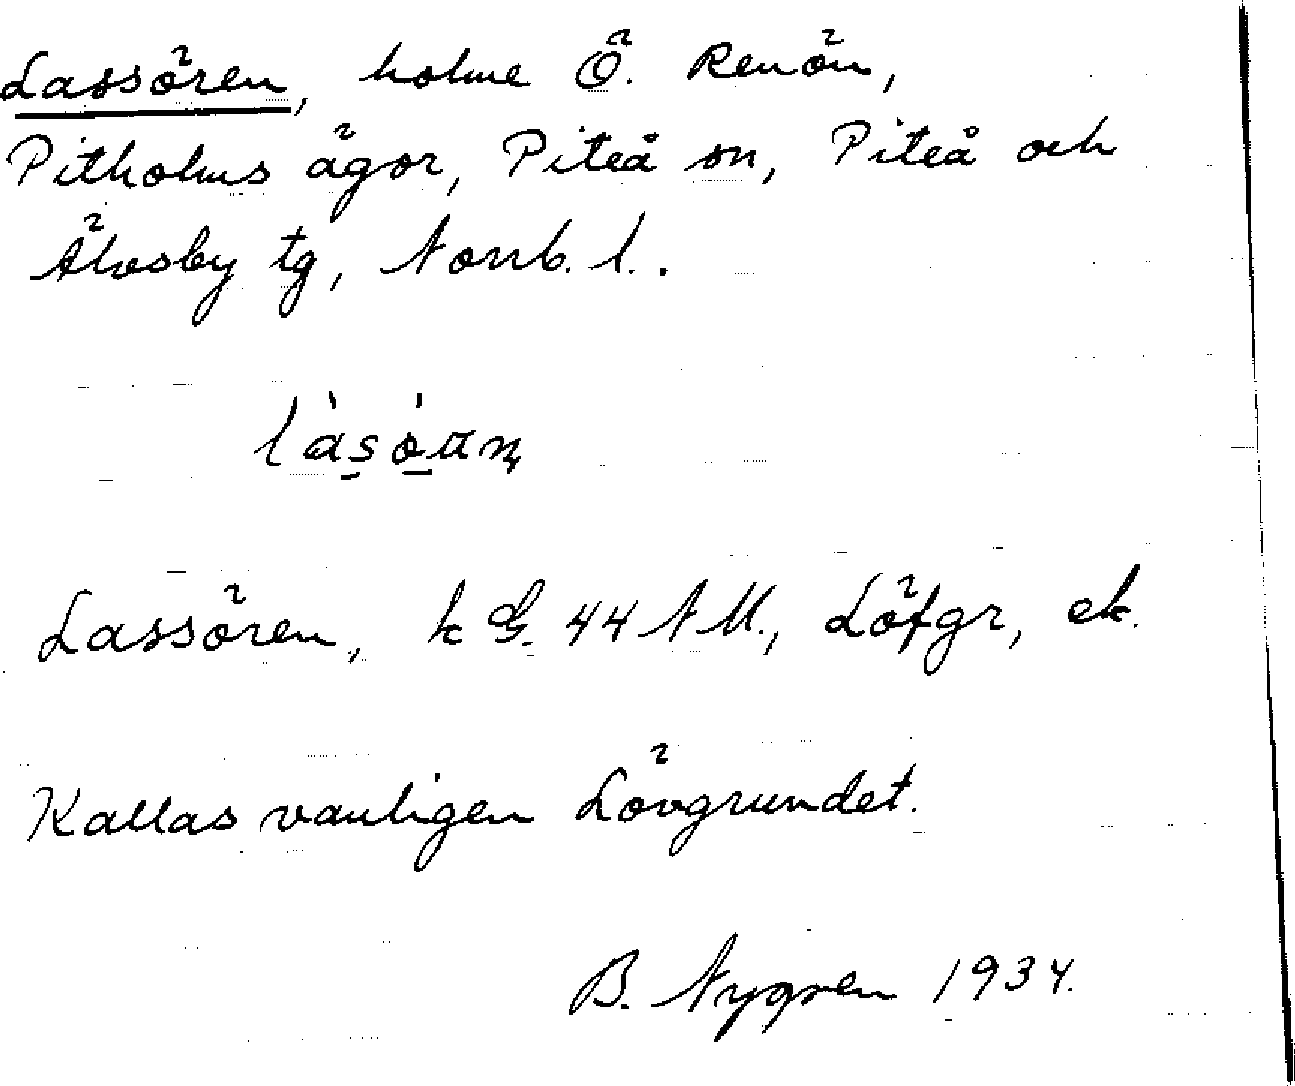 Lassören, holme Ö. Renön,
Pitholms ägor, Piteå sn, Piteå och
Älvsby tg, Norrb. l.
Lassören, k G. 44 NM., Löfgr, ek.
Kallas vanligen Lövgrundet.
B. Nygren 1934.